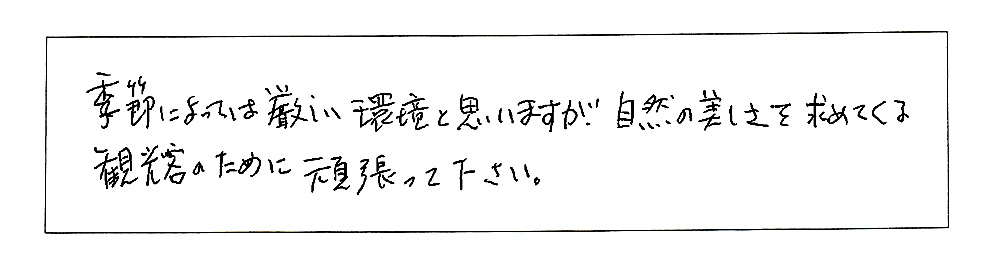 季節によっては厳しい環境と思いますが自然の美しさを求めてくる
観光客のために頑張って下さい。